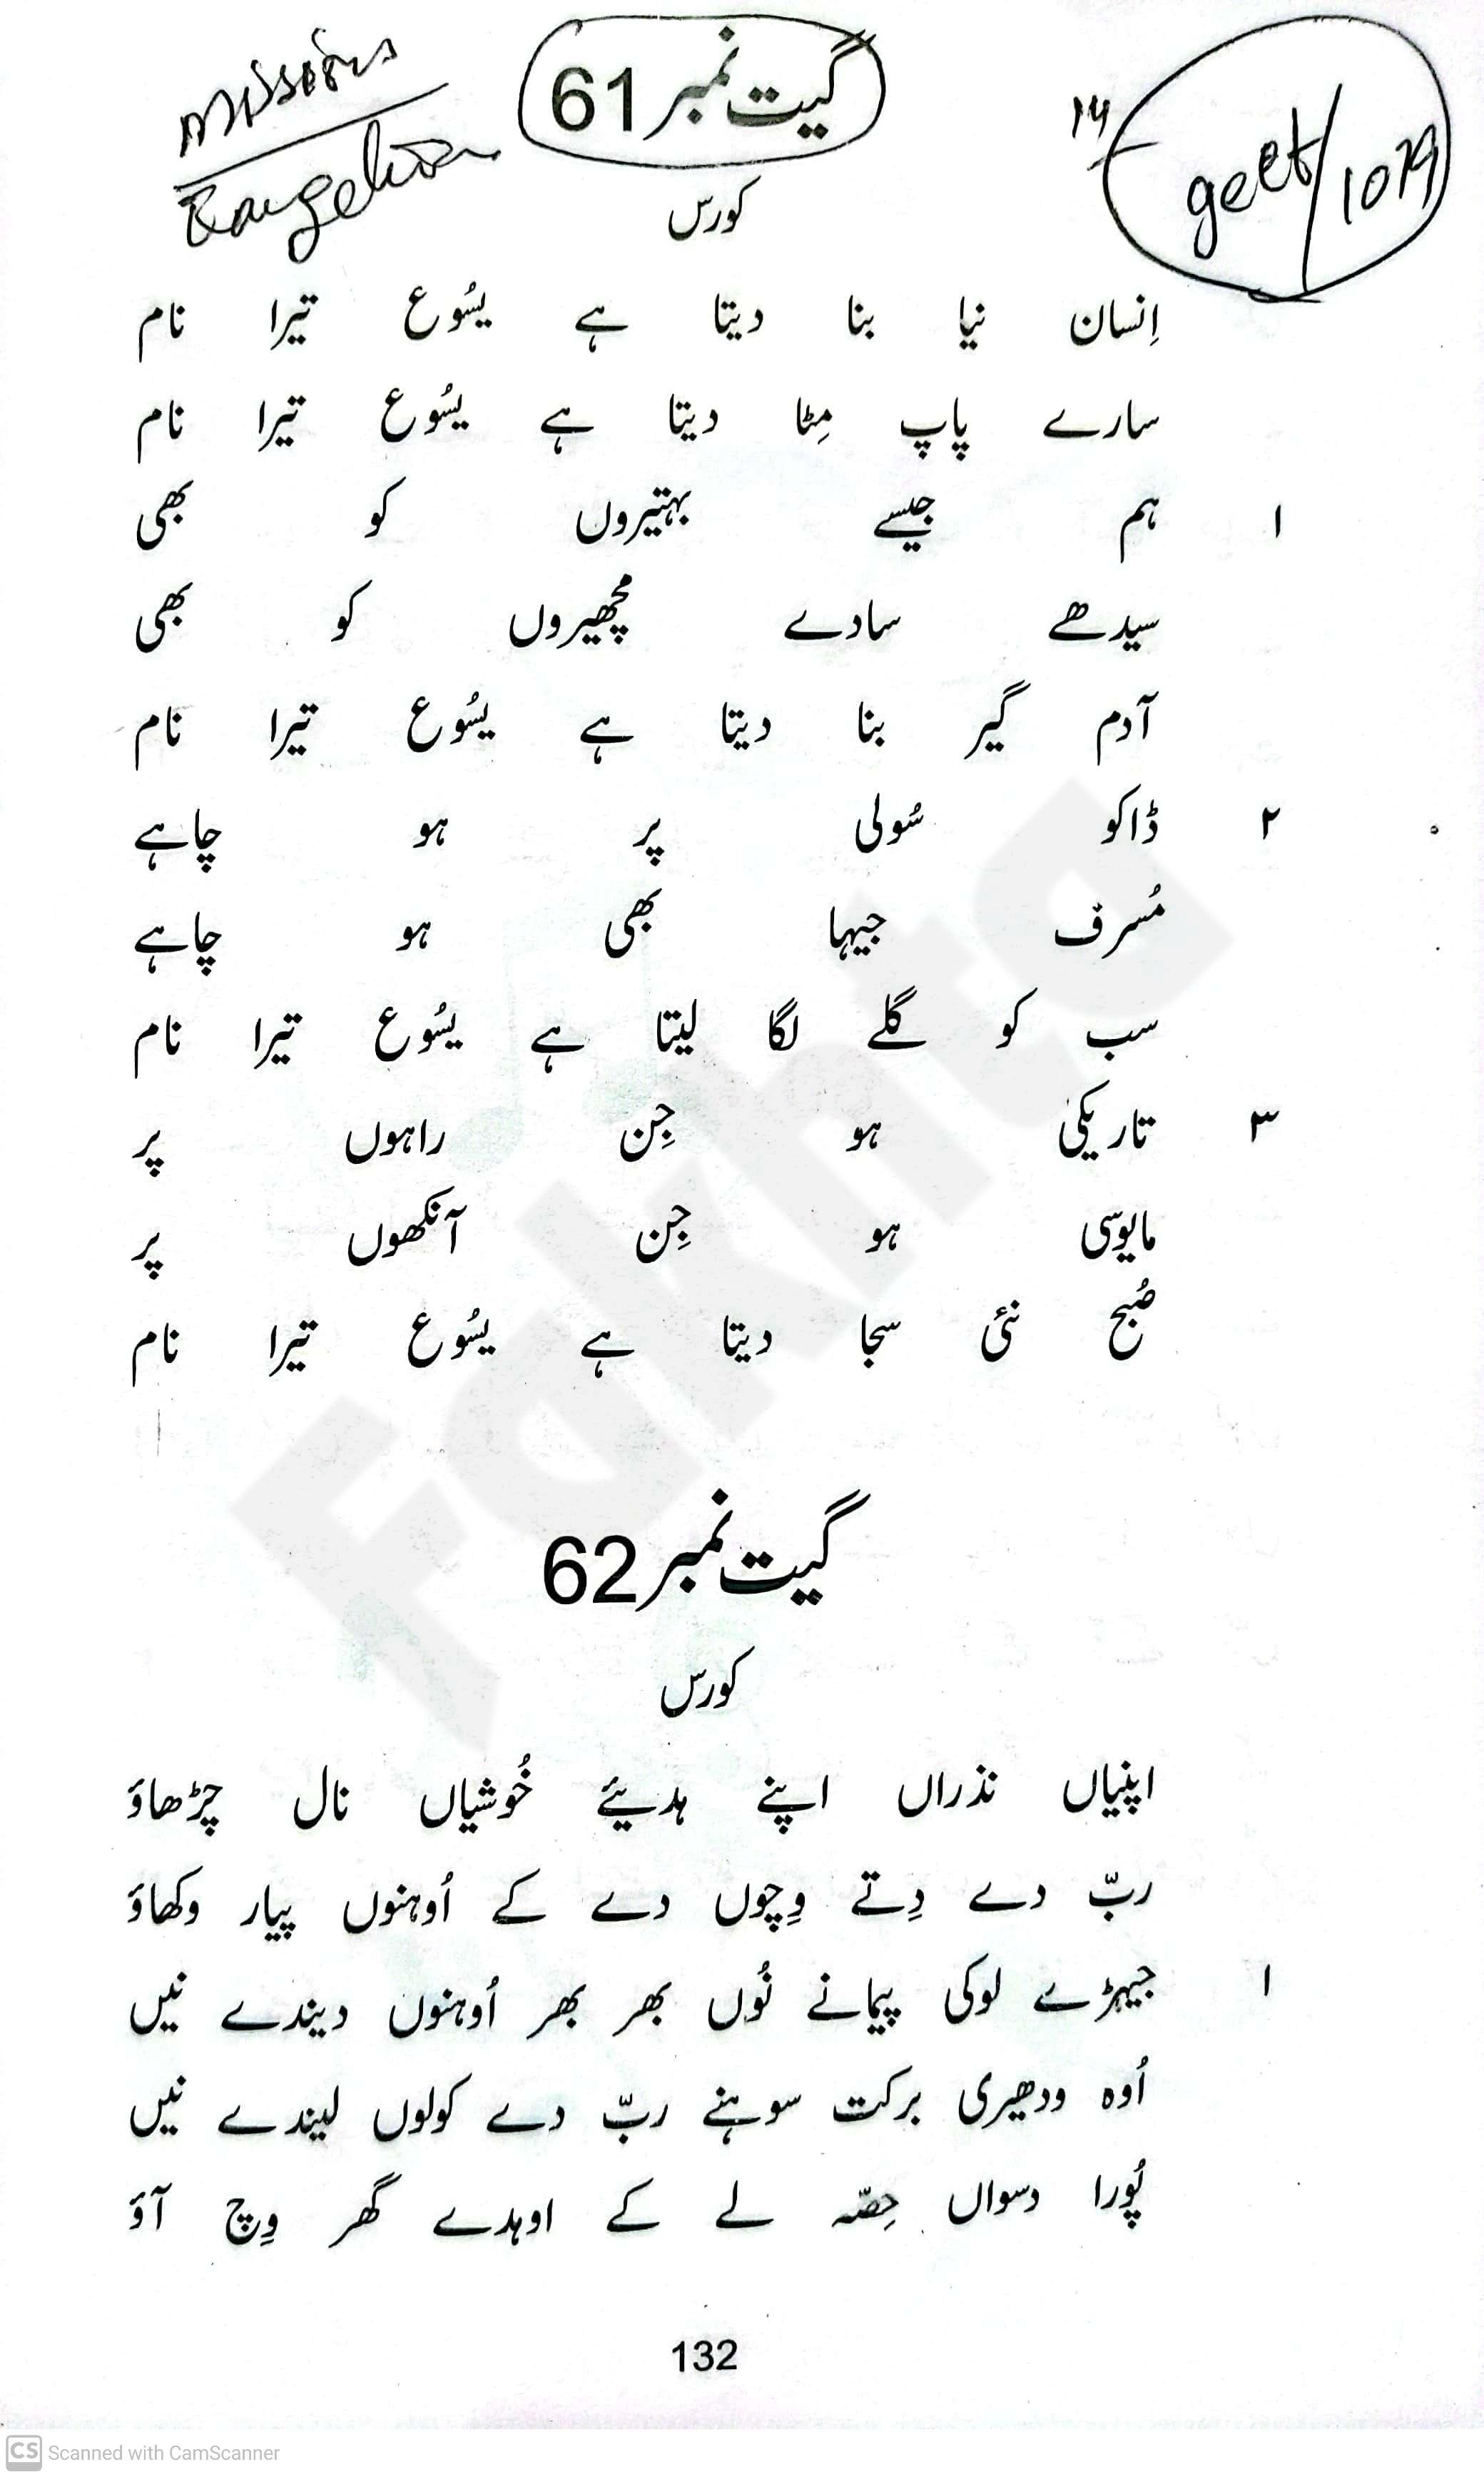 mission
Evangelism
گیت نمبر 61
14
geet/1079
کورس
اِنسان نیا بنا دیتا ہے یسُوع تیرا نام
سارے پاپ مِٹا دیتا ہے یسُوع تیرا نام
۱ ہم جیسے بہتیروں کو بھی
سیدھے سادے مچھیروں کو بھی
آدم گیر بنا دیتا ہے یسُوع تیرا نام
۲ ڈاکو سُولی پر ہو چاہے
مُسرف جیہا بھی ہو چاہے
سب کو گلے لگا لیتا ہے یسُوع تیرا نام
۳ تاریکی ہو جِن راہوں پر
مایوسی ہو جِن آنکھوں پر
صُبح نئی سجا دیتا ہے یسُوع تیرا نام
گیت نمبر 62
کورس
اپنیاں نذراں اپنے ہدیئے خُوشیاں نال چڑھاؤ
ربّ دے دِتے وِچوں دے کے اُوہنوں پیار وکھاؤ
۱ جیہڑے لوکی پیمانے نُوں بھر بھر اُوہنوں دیندے نیں
اُوہ ودھیری برکت سوہنے ربّ دے کولوں لیندے نیں
پُورا دسواں حِصّہ لے کے اوہدے گھر وِچ آؤ
132
Fakhta
CS Scanned with CamScanner